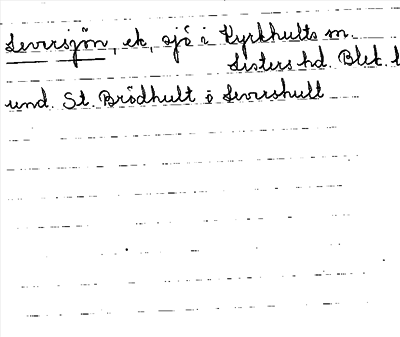 Sevrisjön, ek, sjö i Kyrkhults sn.
Listers hd. Blek. l
und. St. Brödhult o Sevrshult